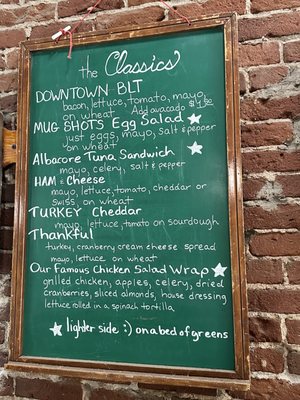 the Classics
DOWNTOWN BLT
bacon, lettuce, tomato, mayo,
on wheat Add avocado $1.50
MUG SHOTS Egg Salad
just eggs, mayo, salt & pepper
on wheat
Albacore Tuna Sandwich
mayo, celery, salt & pepper
HAM & Cheese
mayo, lettuce, tomato, cheddar or
swiss, on wheat
TURKEY Cheddar
mayo, lettuce, tomato on sourdough
Thankful
turkey, cranberry cream cheese spread
mayo, lettuce on wheat
Our famous Chicken Salad Wrap
grilled chicken, apples, celery, dried
cranberries, sliced almonds, house dressing
lettuce rolled in a spinach tortilla
lighter side :) on a bed of greens